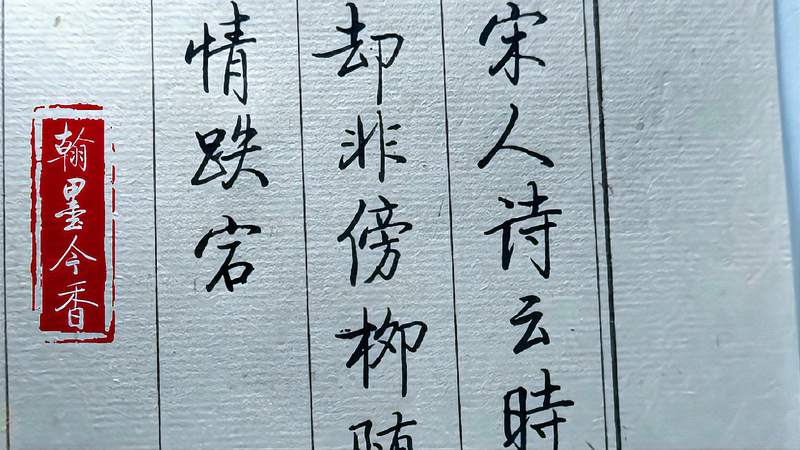 宋人诗云時
却非傍柳随
情跌宕
翰墨今香